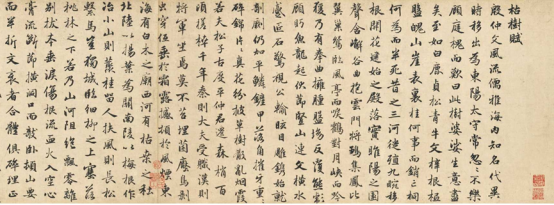 枯樹賦
殷仲文風流儒雅海內知名代異
時移出為東陽太守常忽忽不樂
顧庭槐而歎曰此樹婆娑生意盡
矣至如白鹿貞松青牛文梓根柢
盤魄山崖表裏桂何事而銷亡桐
何為而半死昔之三河徙殖九畹移
根開花建始之殿落實睢陽之園
聲含嶰谷曲抱雲門將雛集鳳比
翼巢鴛臨風亭而唳鶴對月峽而吟
猨乃有拳曲擁腫盤坳反覆熊彪
顧盼魚龍起伏節豎山連文橫水
蹙匠石驚視公輸眩目雕鐫始就
剞劂仍加平鱗鏟甲落角摧牙重重
碎錦片片真花紛披草樹散亂煙霞
若夫松子古度平仲君遷森梢百
頃槎枿千年秦則大夫受職漢則
將軍坐焉莫不苔埋菌壓鳥剝
蟲穿或低垂於霜露或撼頓於風煙東
海有白木之廟西河有枯桑之社
北陸以楊葉為關南陵以梅根作
冶小山則叢桂留人扶風則長松
繫馬豈獨城臨細柳之上塞落
桃林之下若乃山河阻絕飄零離
別拔本垂淚傷根瀝血火入空心
膏流斷節橫洞口而敧臥頓山要
而半折文衰者合體俱碎理正